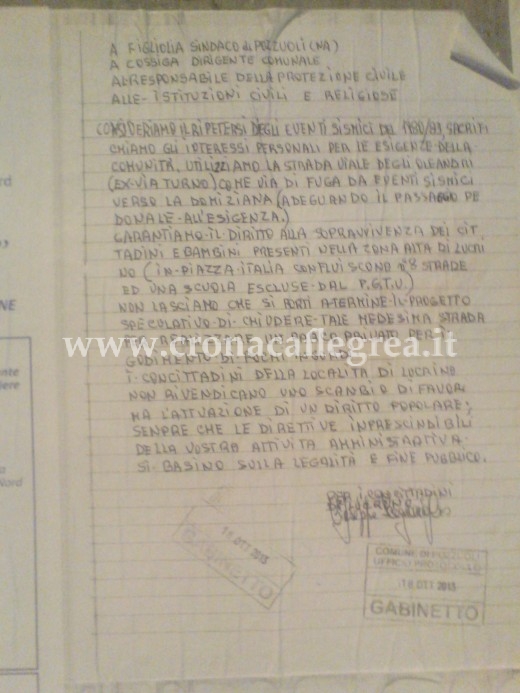 A FIGLIOLIA SINDACO di POZZUOLI (NA)
A COSSIGA DIRIGENTE COMUNALE
AL RESPONSABILE DELLA PROTEZIONE CIVILE
ALLE ISTITUZIONI CIVILI E RELIGIOSE
CONSIDERIAMO IL RIPETERSI DEGLI EVENTI SISMICI DEL 1980/83, SACRIFI
CHIAMO GLI INTERESSI PERSONALI PER LE ESIGENZE DELLA
COMUNITÀ. UTILIZZIAMO LA STRADA VIALE DEGLI OLEANDRI
(EX-VIA TURNO) COME VIA DI FUGA DA EVENTI SISMICI
VERSO LA DOMIZIANA (ADEGUANDO IL PASSAGGIO PE
DONALE ALL'ESIGENZA.)
GARANTIAMO IL DIRITTO ALLA SOPRAVVIVENZA DEI CIT
TADINI E BAMBINI PRESENTI NELLA ZONA ALTA DI LUCRI
NO (IN PIAZZA ITALIA CONFLUISCONO n°8 STRADE
ED UNA SCUOLA ESCLUSE DAL P.G.T.U.)
NON LASCIAMO CHE SI PORTI A TERMINE IL PROGETTO
SPECULATIVO DI CHIUDERE TALE MEDESIMA STRADA
PRIVATO PER
www.cronacaflegrea.it
GODIMENTO DI POCHI
I CONCITTADINI DELLA LOCALITÀ DI LUCRINO
NON RIVENDICANO UNO SCAMBIO DI FAVORI
MA L'ATTUAZIONE DI UN DIRITTO POPOLARE;
SEMPRE CHE LE DIRETTIVE IMPRESCINDIBILI
DELLA VOSTRA ATTIVITÀ AMMINISTRATIVA
SI BASINO SULLA LEGALITÀ E FINE PUBBLICO.
PER I CONCITTADINI
18 OTT 2013
GABINETTO
COMUNE DI POZZUOLI
UFFICIO PROTOCOLLO
18 OTT 2013
GABINETTO